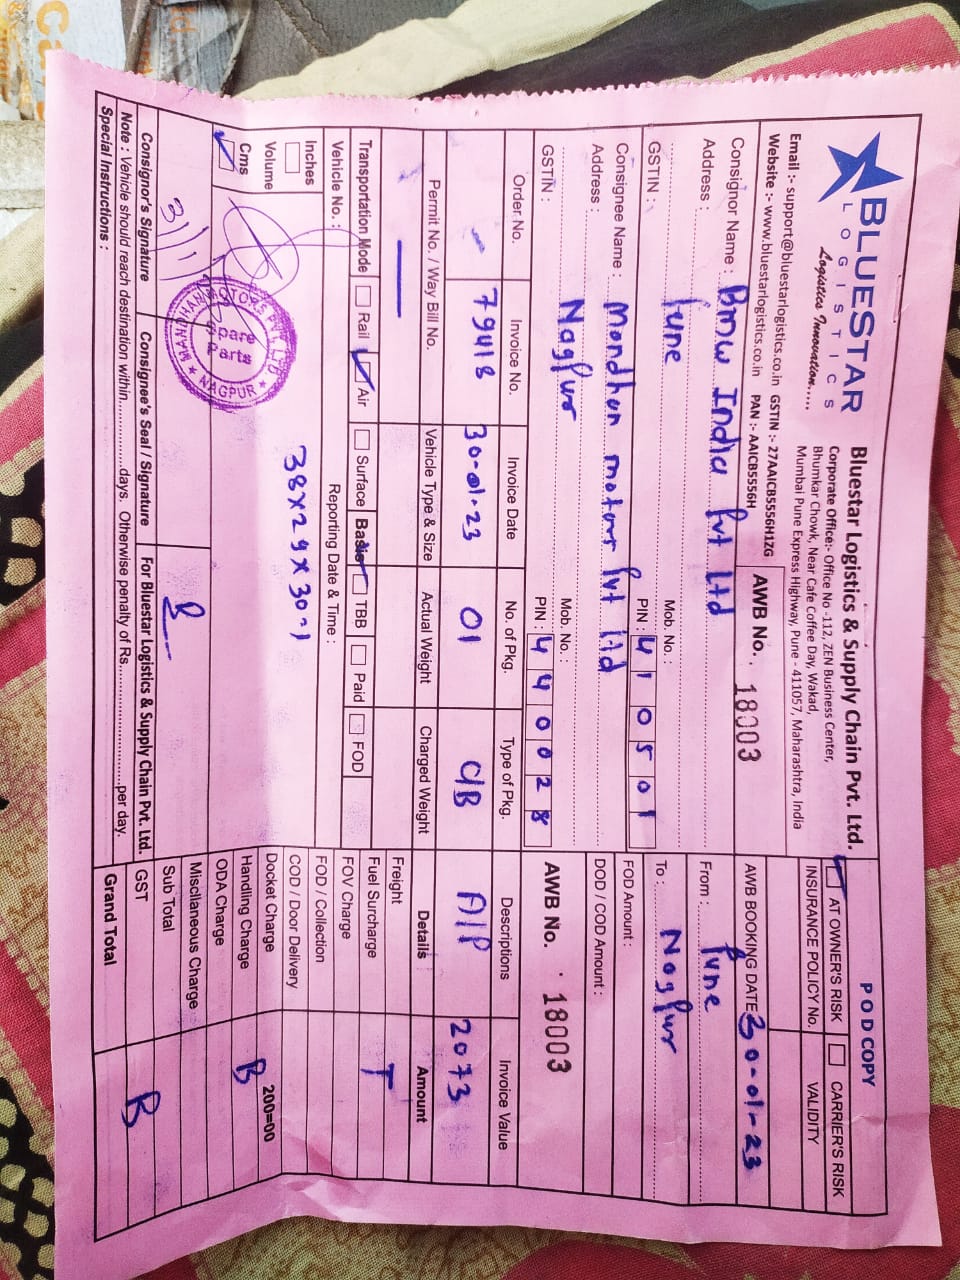 BLUESTAR
LOGISTICS
Logistics Innovation......
Bluestar Logistics & Supply Chain Pvt. Ltd.
Corporate Office:- Office No -112, ZEN Business Center,
Bhumkar Chowk, Near Cafe Coffee Day, Wakad,
Mumbai Pune Express Highway, Pune - 411057, Maharashtra, India
Email :- support@bluestarlogistics.co.in GSTIN :- 27AAICB5556H1ZG
Website :- www.bluestarlogistics.co.in PAN :- AAICB5556H
POD COPY
AT OWNER'S RISK CARRIER'S RISK
INSURANCE POLICY No. VALIDITY
AWB No. 18003
AWB BOOKING DATE 30-01-23
Consignor Name : Bmw India Pvt Ltd
Address : Pune
Mob. No. :
GSTIN : PIN : 410501
From : Pune
To : Nagpur
Consignee Name : Mondhan motors Pvt ltd
Address :
Nagpur Mob. No. :
GSTIN : PIN : 440028
FOD Amount :
DOD / COD Amount :
AWB No. 18003
Order No. Invoice No. Invoice Date No. of Pkg. Type of Pkg. Descriptions Invoice Value
- 79418 30-01-23 01 C/B A/P 2073
Permit No. / Way Bill No. Vehicle Type & Size Actual Weight Charged Weight Details Amount
Transportation Mode Rail Air Surface Basic TBB Paid FOD
Vehicle No. : Reporting Date & Time :
Inches
Volume
Cms
38x29x30-1
Freight
Fuel Surcharge T
FOV Charge
FOD / Collection
COD / Door Delivery
Docket Charge 200=00
Handling Charge B
ODA Charge
Miscllaneous Charge
Sub Total
GST B
Grand Total
31/1
MOTORS PVT. LTD.
Spare
Parts
NAGPUR
Consignor's Signature Consignee's Seal / Signature For Bluestar Logistics & Supply Chain Pvt. Ltd.
Note : Vehicle should reach destination within............days. Otherwise penalty of Rs..............................per day.
Special Instructions :